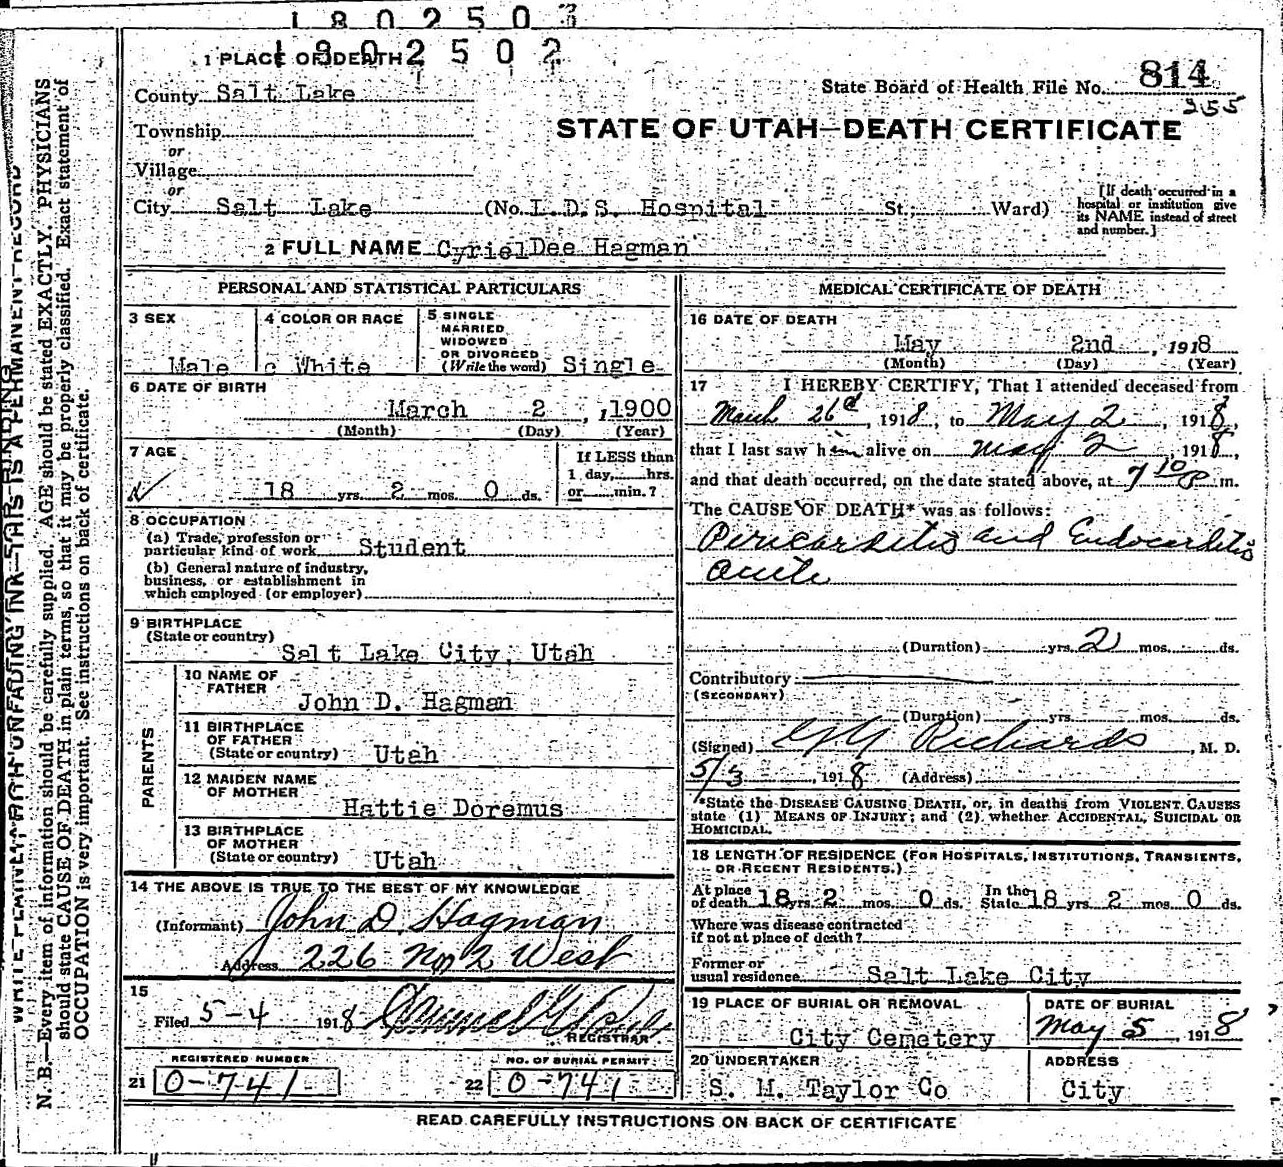 1802503
1902502
1 PLACE OF DEATH
County Salt Lake
State Board of Health File No. 814
255
Township
or
STATE OF UTAH—DEATH CERTIFICATE
Village
or
City Salt Lake (No. L.D.S. Hospital St.; Ward)
[If death occurred in a hospital or institution give its NAME instead of street and number.]
2 FULL NAME Cyriel Dee Hagman
PERSONAL AND STATISTICAL PARTICULARS
3 SEX
Male
4 COLOR OR RACE
c White
5 SINGLE
MARRIED
WIDOWED
OR DIVORCED
(Write the word) Single
6 DATE OF BIRTH
March 2, 1900
(Month) (Day) (Year)
7 AGE
18 yrs. 2 mos. 0 ds.
If LESS than
1 day, hrs.
or min.?
8 OCCUPATION
(a) Trade, profession or
particular kind of work Student
(b) General nature of industry,
business, or establishment in
which employed (or employer)
9 BIRTHPLACE
(State or country)
Salt Lake City, Utah
PARENTS
10 NAME OF
FATHER
John D. Hagman
11 BIRTHPLACE
OF FATHER
(State or country) Utah
12 MAIDEN NAME
OF MOTHER
Hattie Doremus
13 BIRTHPLACE
OF MOTHER
(State or country) Utah
14 THE ABOVE IS TRUE TO THE BEST OF MY KNOWLEDGE
(Informant) John D. Hagman
Address 226 No 2 West
15
Filed 5-4 1918
REGISTRAR
REGISTERED NUMBER
21 0-741
NO. OF BURIAL PERMIT
22 0-741
MEDICAL CERTIFICATE OF DEATH
16 DATE OF DEATH
May 2nd, 1918
(Month) (Day) (Year)
17 I HEREBY CERTIFY, That I attended deceased from
March 26d, 1918, to May 2, 1918,
that I last saw him alive on May 2, 1918,
and that death occurred, on the date stated above, at 7 10 P m.
The CAUSE OF DEATH* was as follows:
Pericarditis and Endocarditis
acute
(Duration) yrs. 2 mos. ds.
Contributory
(SECONDARY)
(Duration) yrs. mos. ds.
(Signed) GG Richards, M. D.
5/3, 1918 (Address)
*State the DISEASE CAUSING DEATH, or, in deaths from VIOLENT CAUSES
state (1) MEANS OF INJURY; and (2) whether ACCIDENTAL, SUICIDAL OR
HOMICIDAL.
18 LENGTH OF RESIDENCE (FOR HOSPITALS, INSTITUTIONS, TRANSIENTS,
OR RECENT RESIDENTS.)
At place
of death 18 yrs. 2 mos. 0 ds. In the State 18 yrs. 2 mos. 0 ds.
Where was disease contracted
if not at place of death?
Former or
usual residence Salt Lake City
19 PLACE OF BURIAL OR REMOVAL
City Cemetery
DATE OF BURIAL
May 5, 1918
20 UNDERTAKER
S. M. Taylor Co
ADDRESS
City
READ CAREFULLY INSTRUCTIONS ON BACK OF CERTIFICATE
WRITE PLAINLY WITH UNFADING INK—THIS IS A PERMANENT RECORD
N. B.—Every item of information should be carefully supplied. AGE should be stated EXACTLY. PHYSICIANS
should state CAUSE OF DEATH in plain terms, so that it may be properly classified. Exact statement of
OCCUPATION is very important. See instructions on back of certificate.